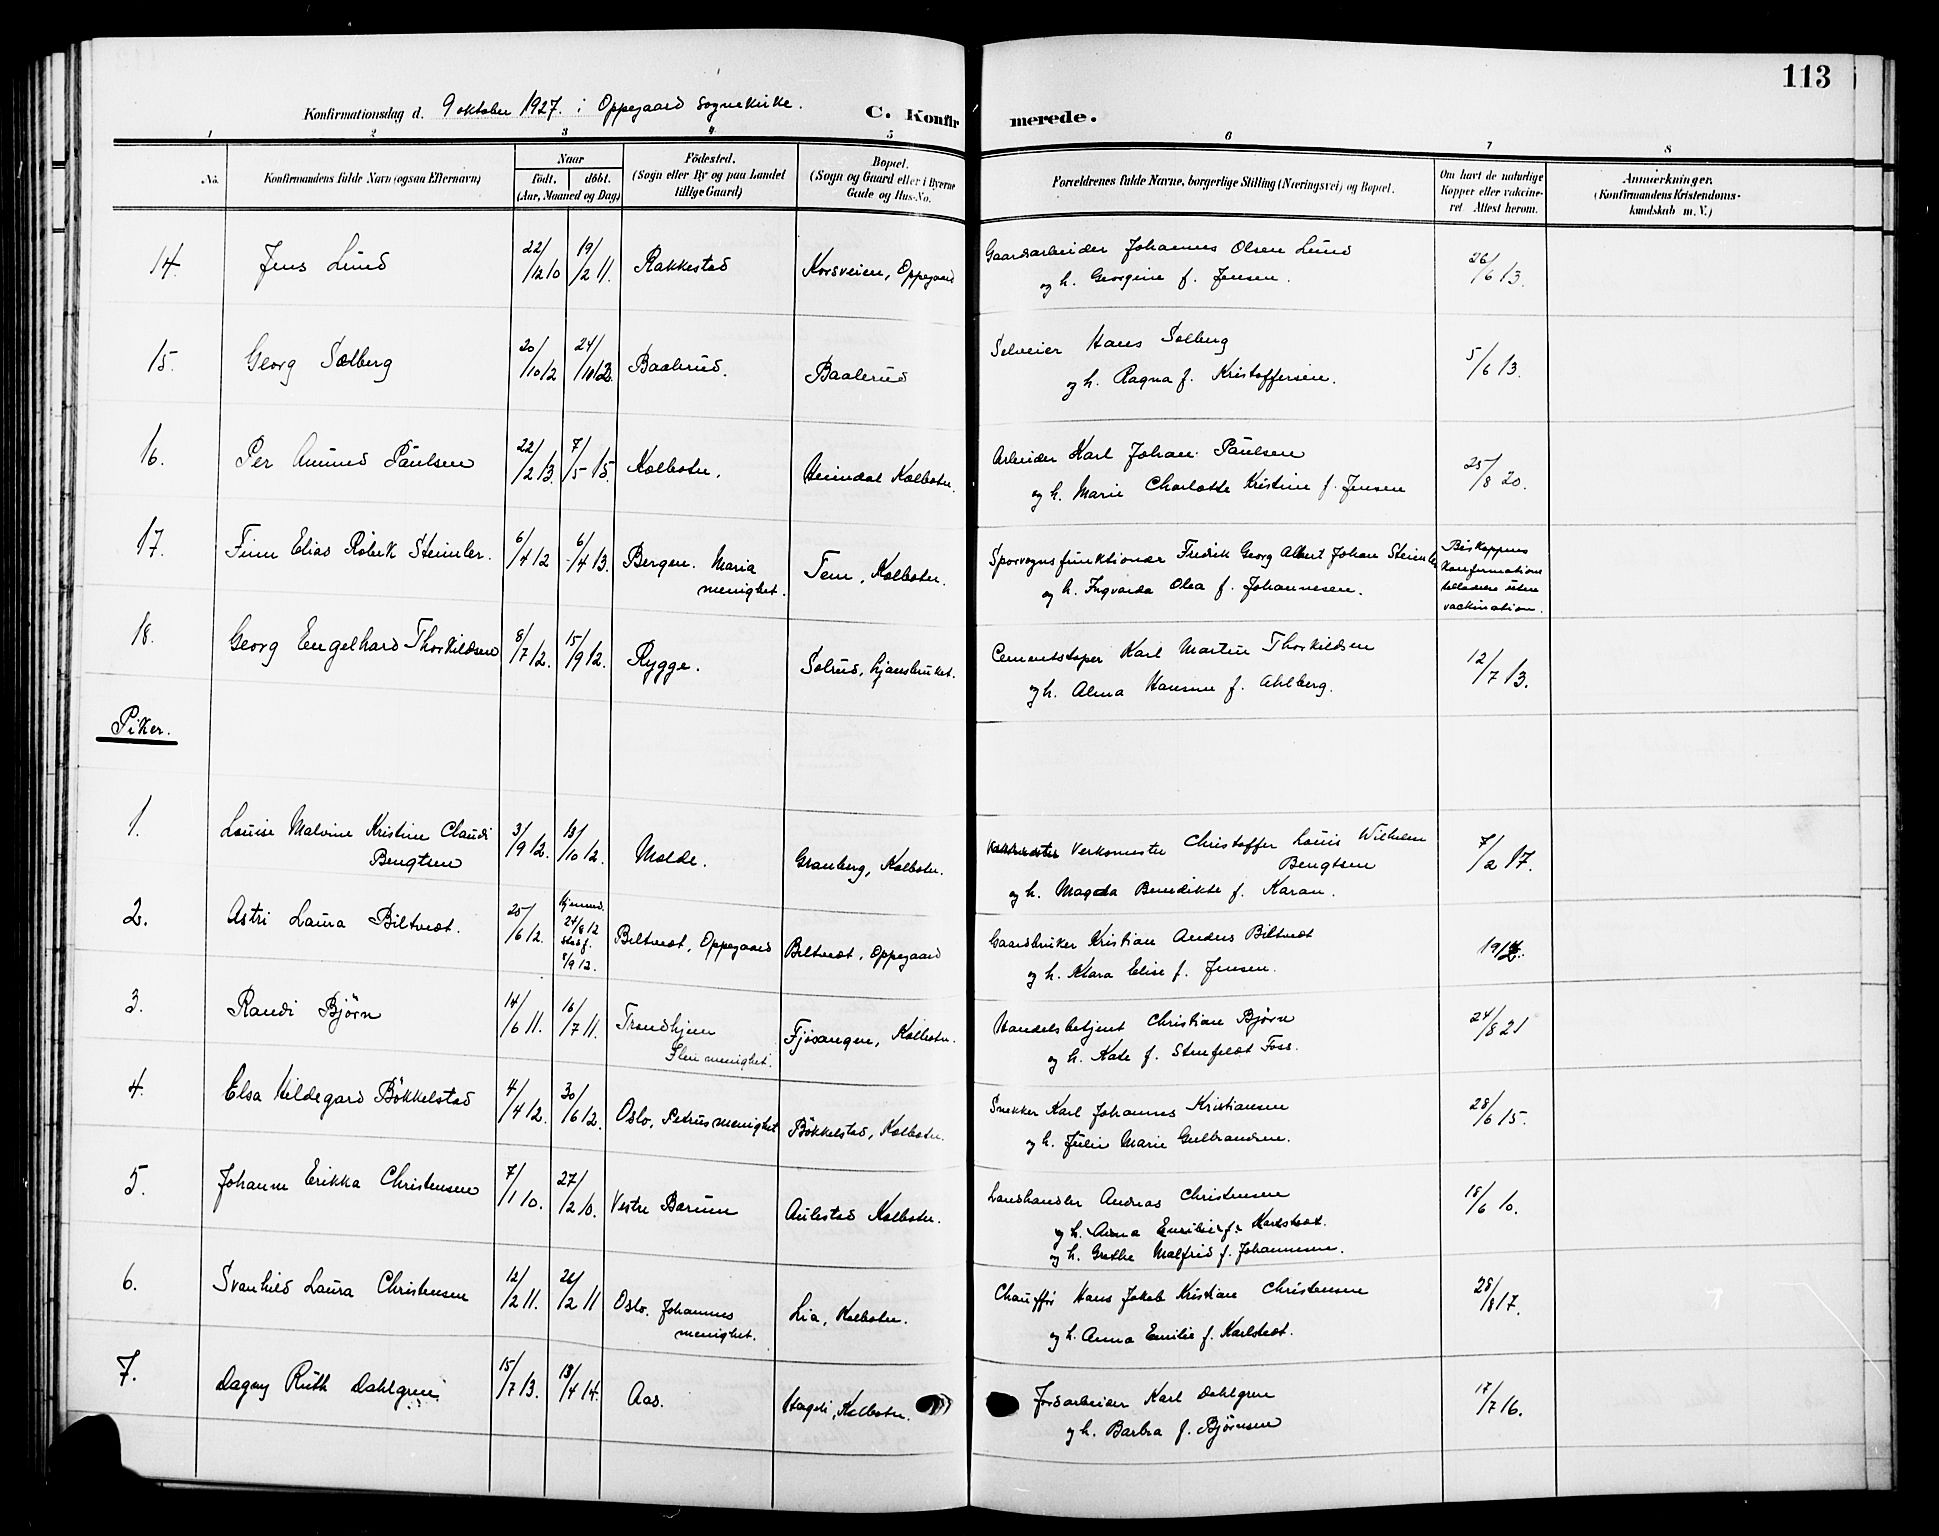 113
Konfirmationsdag d. 9 oktober 1927. i Oppegaard sognekirke. C. Konfirmerede.
1 2 3 4 5 6 7 8
No. Konfirmandens fulde Navn (ogsaa Efternavn) Naar født, døbt. (Aar, Maaned og Dag) Fødested. (Sogn eller By og paa Landet tillige Gaard) Bopæl. (Sogn og Gaard eller i Byerne Gade og Hus-No. Forældrenes fulde Navne, borgerlige Stilling (Næringsvei) og Bopæl. Om havt de naturlige Kopper eller vakcineret. Attest herom. Anmærkninger. (Konfirmandens Kristendomskundskab m. V.)
14. Jens Lund 22/12 10 19/2 11. Rakkestad Korsveien, Oppegaard Gaardsarbeider Johannes Olsen Lund 26/6 13.
og h. Georgine f. Jensen.
15. Georg Solberg 20/10 12 24/ 12. Baalerud. Baalerud Selveier Hans Solberg 5/6 13.
og h. Ragna f. Kristoffersen.
16. Per Amund Paulsen 22/2 13. 7/5 15. Kolbotn. Heimdal Kolbotn. Arbeider Karl Johan Paulsen 25/8 20.
og h. Marie Charlotte Kristine f. Jensen
17. Finn Elias Röbek Steimler. 6/4 12 6/4 13. Bergen. Maria menighet. Tem, Kolbotn. Sporvognsfunktionær Fredrik Georg Albert Johan Steimler Biskoppens
og h. Ingvarda Olea f. Johannesen. konfirmations
tilladelse uten
vackination.
18. Georg Engelhard Thorkildsen 8/7 12. 15/9 12. Rygge. Solrud, Ljansbruket. Cementstøper Karl Martin Thorkildsen 12/7 13.
og h. Alma Hansine f. Ahlberg.
Piker.
1. Louise Malvine Kristine Claudi 3/9 12. 13/10 12. Molde. Granberg, Kolbotn. Verkomester Christoffer Louis Wilhelm 7/2 17.
Bengtsen Bengtsen
og h. Magda Benedikte f. Karan.
2. Astri Laura Biltvedt. 25/6 12. hjemmed. 24/6 12 stadf. 8/9 12. Biltvedt, Oppegaard Biltvedt, Oppegaard Gaardbruker Kristian Anders Biltvedt
og h. Klara Elise f. Jensen.
3. Randi Björn 14/6 11. 16/7 11. Trondhjem Ilen menighet. Fjösangen, Kolbotn. Handelsbetjent Christian Björn 24/8 21
og h. Kate f. Stenfeldt Foss.
4. Elsa Hildegard Bökkelstad 4/4 12. 30/6 12. Oslo, Petrus menighet Bökkelstad, Kolbotn. Snekker Karl Johannes Kristiansen 28/6 15.
og h. Julie Marie Gulbrandsen.
5. Johanne Erikka Christensen 7/1 10. 27/2 10. Vestre Bærum Aulestad Kolbotn. Landhandler Andreas Christensen 18/6 10.
og h. Anna Emilie f. Karlstedt.
og h. Grethe Malfrid f. Johannesen.
6. Svanhild Laura Christensen 12/2 11. 26/2 11 Oslo. Johannes menighet. Lia, Kolbotn. Chauffør Hans Jakob Kristian Christensen 28/8 17.
og h. Anna Emilie f. Karlstedt.
7. Dagny Ruth Dahlgren 15/7 13. 13/4 14. Aas. Hageli, Kolbotn. Jordarbeider Karl Dahlgren 17/7 16.
og h. Barbra f. Björnsen